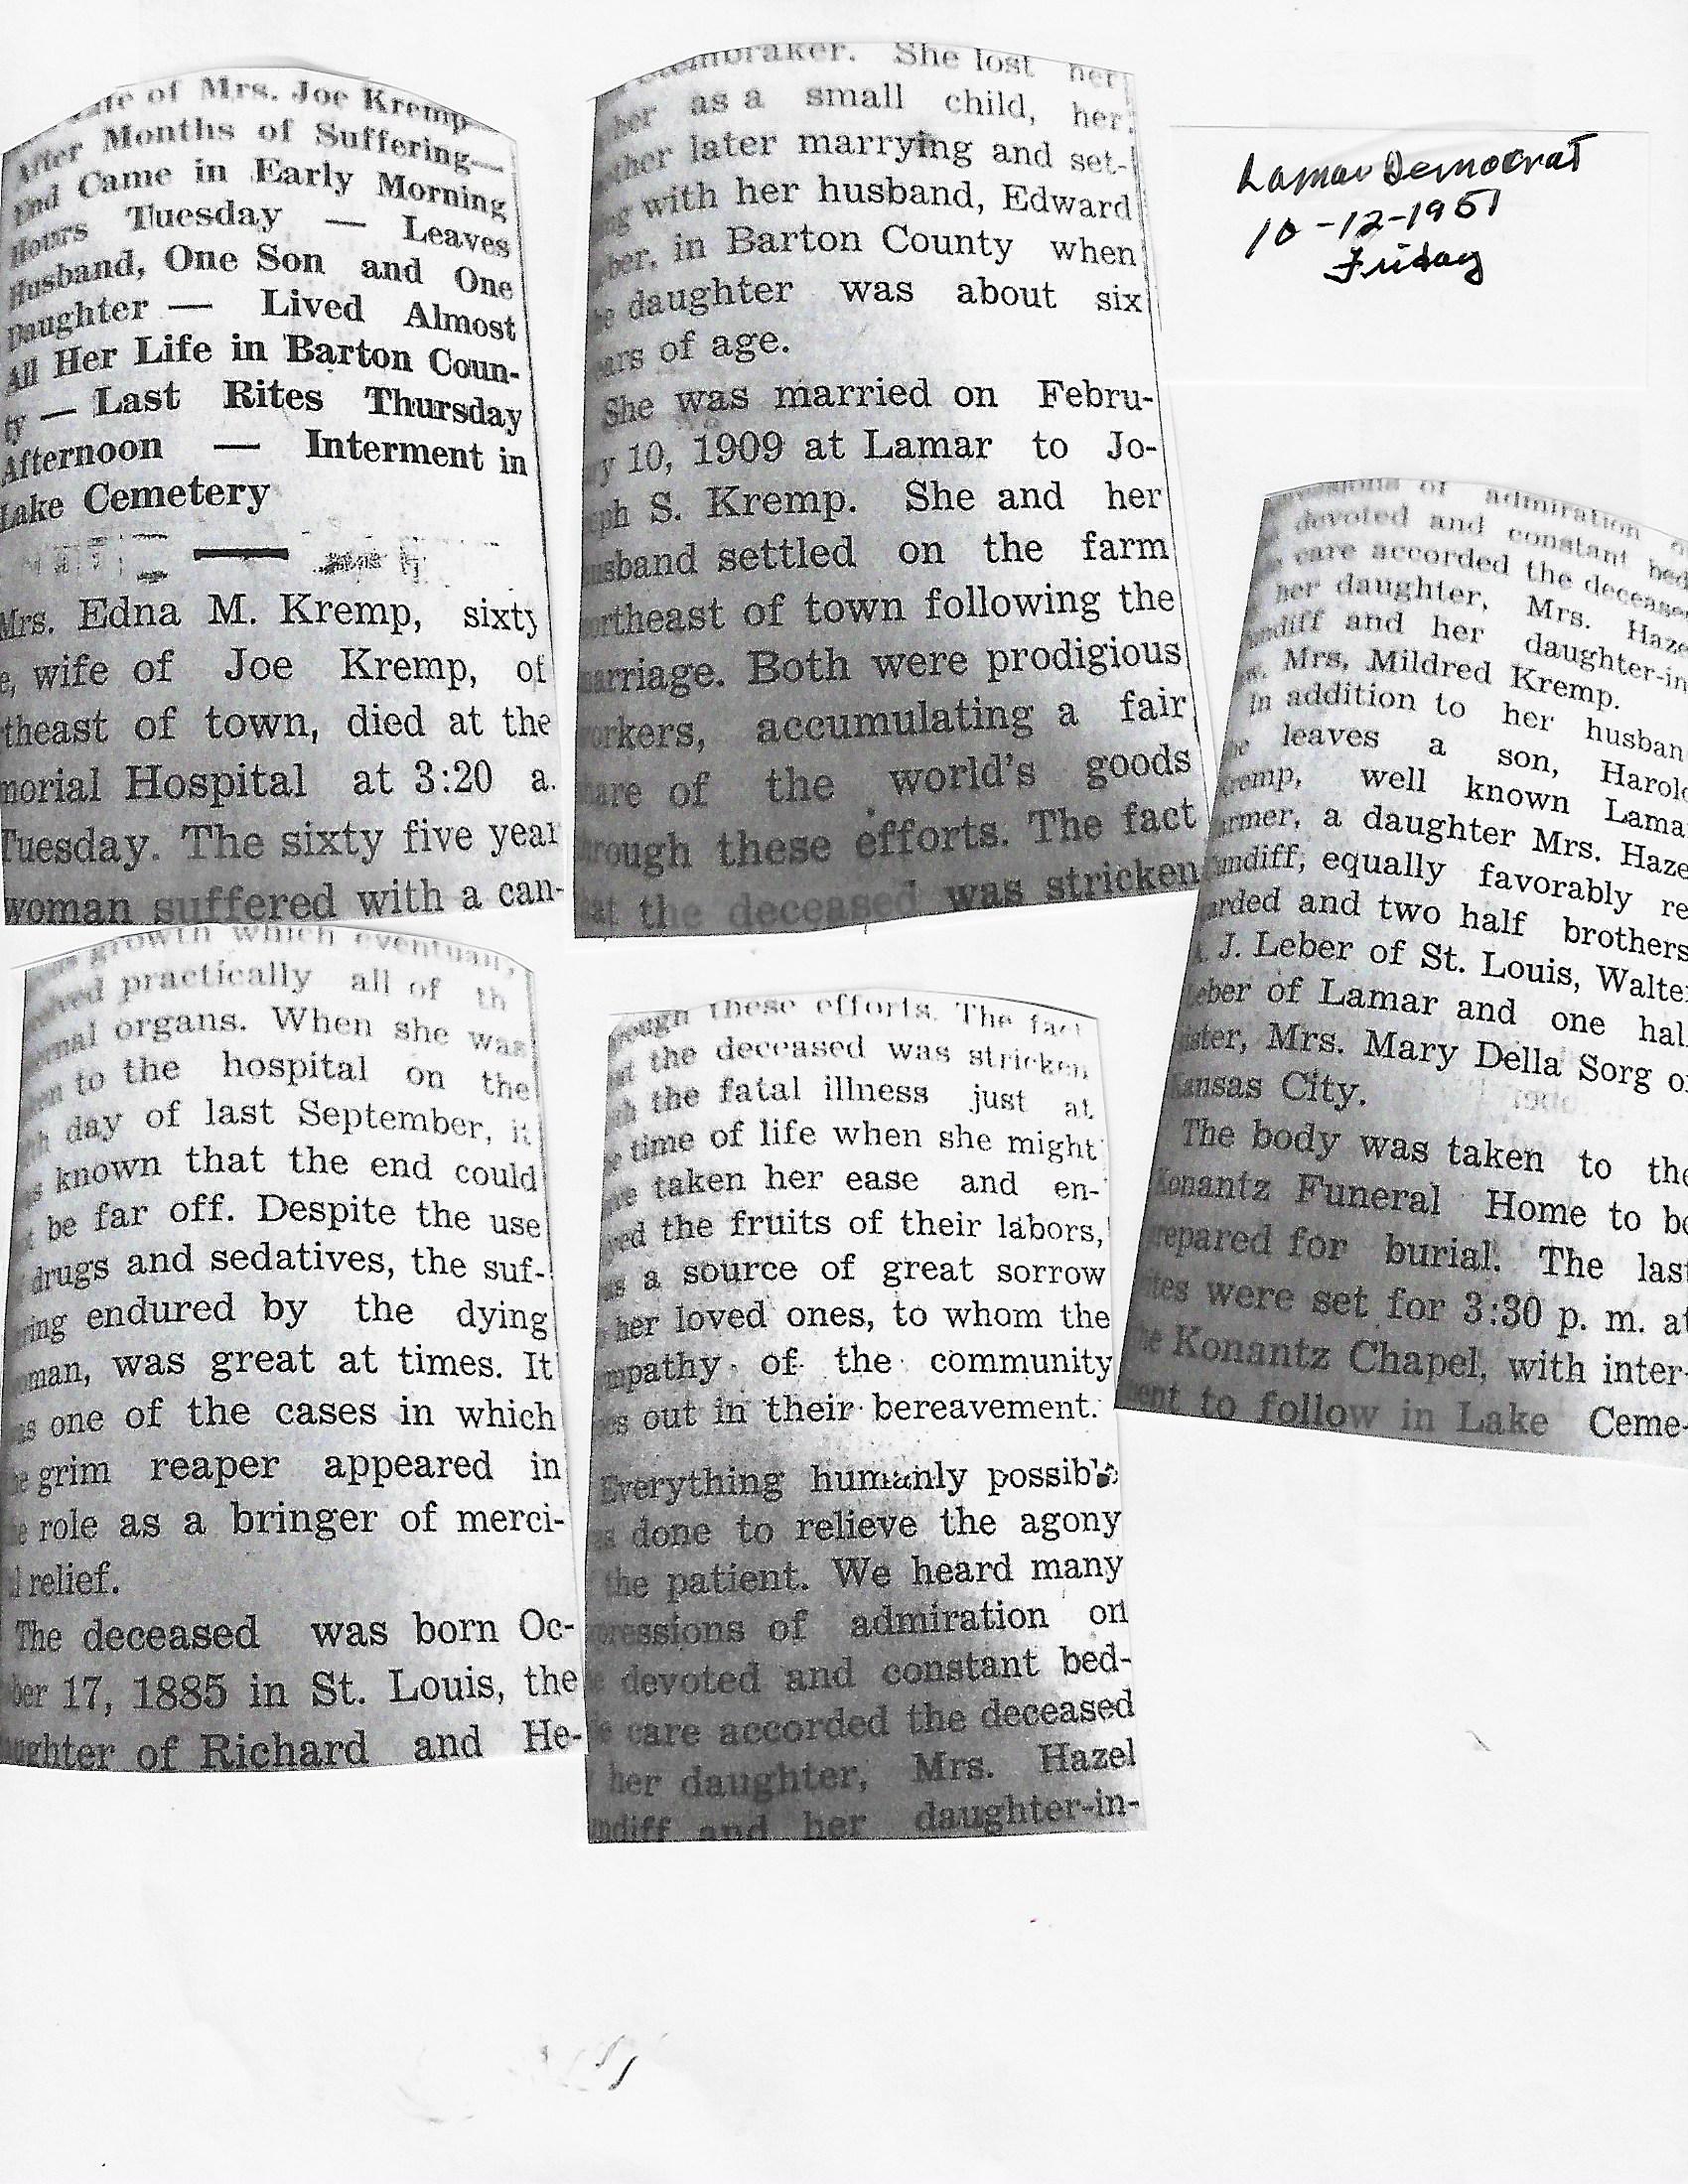 of Mrs. Joe Kremp
After Months of Suffering—
End Came in Early Morning
Hours Tuesday — Leaves
Husband, One Son and One
Daughter — Lived Almost
All Her Life in Barton Coun-
ty — Last Rites Thursday
Afternoon — Interment in
Lake Cemetery
Mrs. Edna M. Kremp, sixty
e, wife of Joe Kremp, of
theast of town, died at the
morial Hospital at 3:20 a.
Tuesday. The sixty five year
woman suffered with a can-
growth which eventual
olved practically all of th
ernal organs. When she was
en to the hospital on the
th day of last September, it
s known that the end could
t be far off. Despite the use
drugs and sedatives, the suf-
ring endured by the dying
man, was great at times. It
as one of the cases in which
e grim reaper appeared in
e role as a bringer of merci-
l relief.
The deceased was born Oc-
ber 17, 1885 in St. Louis, the
ughter of Richard and He-
embraker. She lost her
her as a small child, her
other later marrying and set-
ng with her husband, Edward
ber, in Barton County when
e daughter was about six
ears of age.
She was married on Febru-
ry 10, 1909 at Lamar to Jo-
eph S. Kremp. She and her
usband settled on the farm
ortheast of town following the
arriage. Both were prodigious
orkers, accumulating a fair
hare of the world's goods
rough these efforts. The fact
hat the deceased was stricken
rough these efforts. The fact
at the deceased was stricken
th the fatal illness just at
e time of life when she might
ve taken her ease and en-
yed the fruits of their labors,
as a source of great sorrow
her loved ones, to whom the
mpathy of the community
es out in their bereavement.
Everything humanly possible
as done to relieve the agony
the patient. We heard many
pressions of admiration on
e devoted and constant bed-
de care accorded the deceased
her daughter, Mrs. Hazel
ndiff and her daughter-in-
Lamar Democrat
10-12-1951
Friday
essions of admiration o
devoted and constant bed
care accorded the deceased
her daughter, Mrs. Haze
undiff and her daughter-in
w, Mrs. Mildred Kremp.
In addition to her husban
he leaves a son, Harold
Kremp, well known Lamar
armer, a daughter Mrs. Haze
Cundiff, equally favorably re
arded and two half brothers
A. J. Leber of St. Louis, Walter
Leber of Lamar and one hal
sister, Mrs. Mary Della Sorg of
Kansas City.
The body was taken to the
Konantz Funeral Home to be
repared for burial. The last
rites were set for 3:30 p. m. at
he Konantz Chapel, with inter-
ent to follow in Lake Ceme-